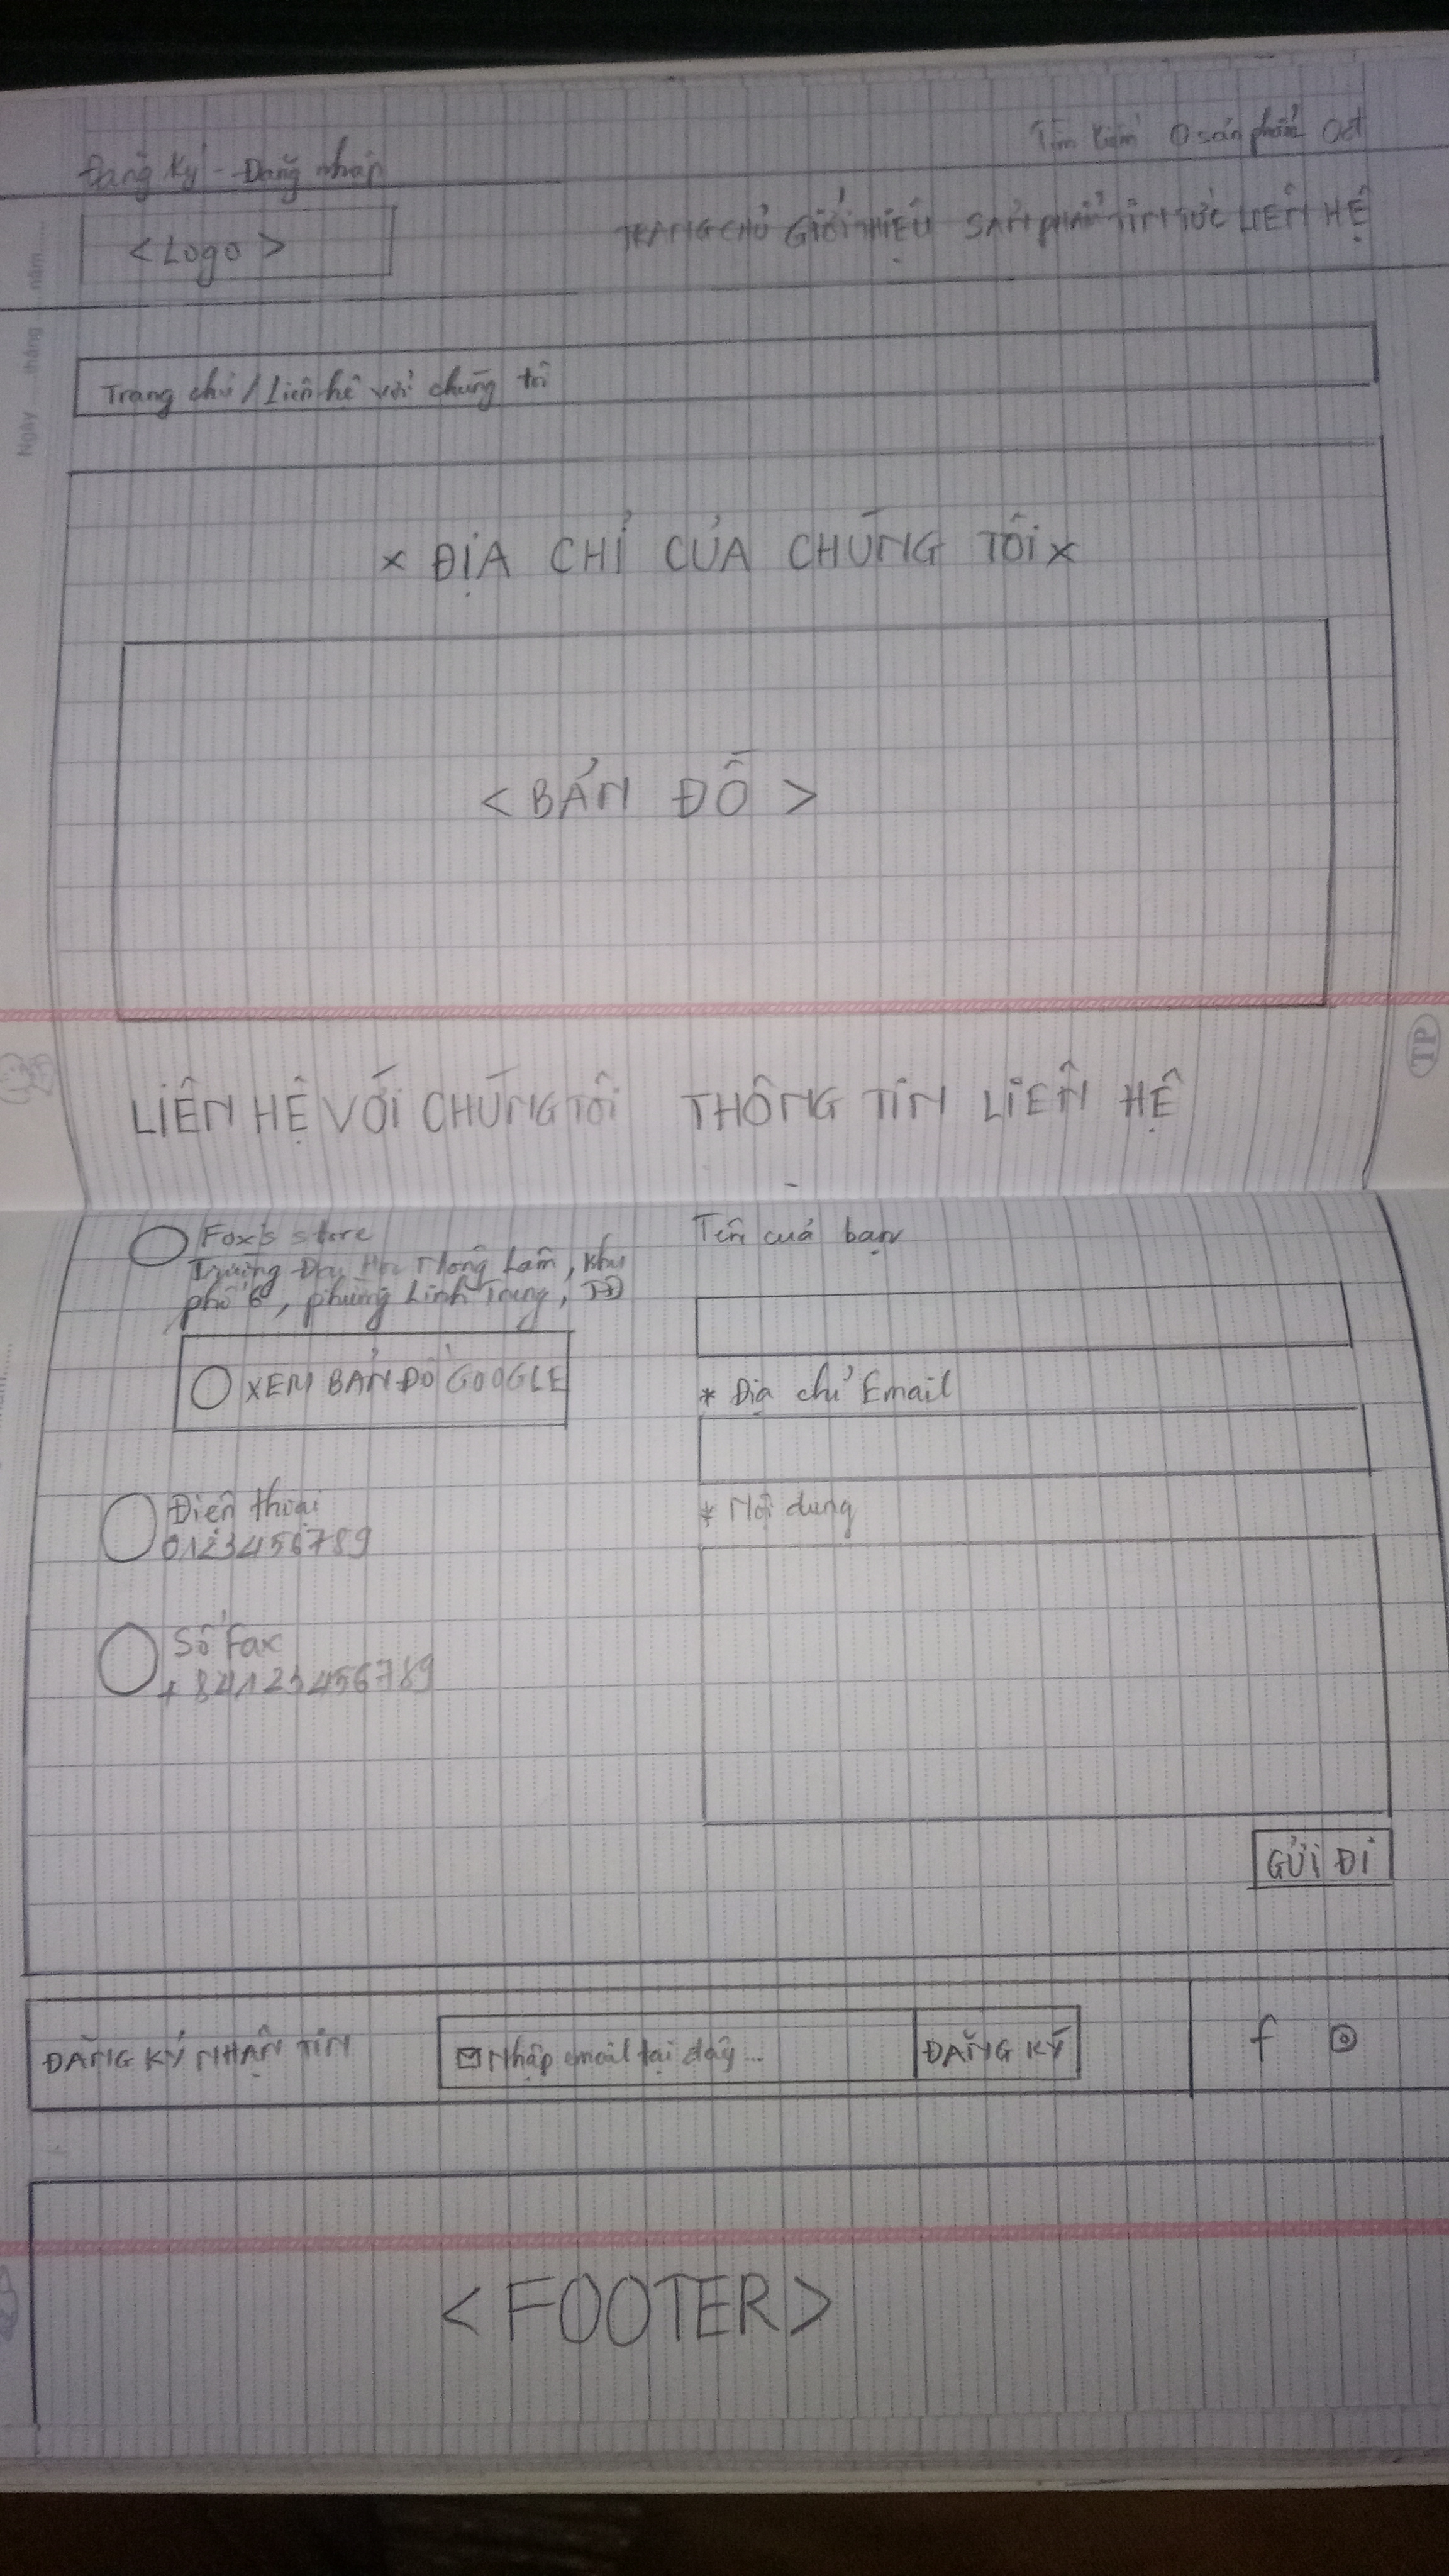 Đăng ký - Đăng nhập
Tìm kiếm 0 sản phẩm 0đ
<Logo>
TRANG CHỦ GIỚI THIỆU SẢN PHẨM TIN TỨC LIÊN HỆ
Trang chủ / Liên hệ với chúng tôi
x ĐỊA CHỈ CỦA CHÚNG TÔI x
<BẢN ĐỒ>
LIÊN HỆ VỚI CHÚNG TÔI
Fox's store
Trường Đại Học Nông Lâm, khu
phố 6, phường Linh Trung, TĐ
XEM BẢN ĐỒ GOOGLE
Điện thoại
0123456789
Số Fax
+84123456789
THÔNG TIN LIÊN HỆ
Tên của bạn
* Địa chỉ Email
* Nội dung
GỬI ĐI
ĐĂNG KÝ NHẬN TIN
Nhập email tại đây...
ĐĂNG KÝ
f
<FOOTER>
Ngày ..... tháng ..... năm.....
TP